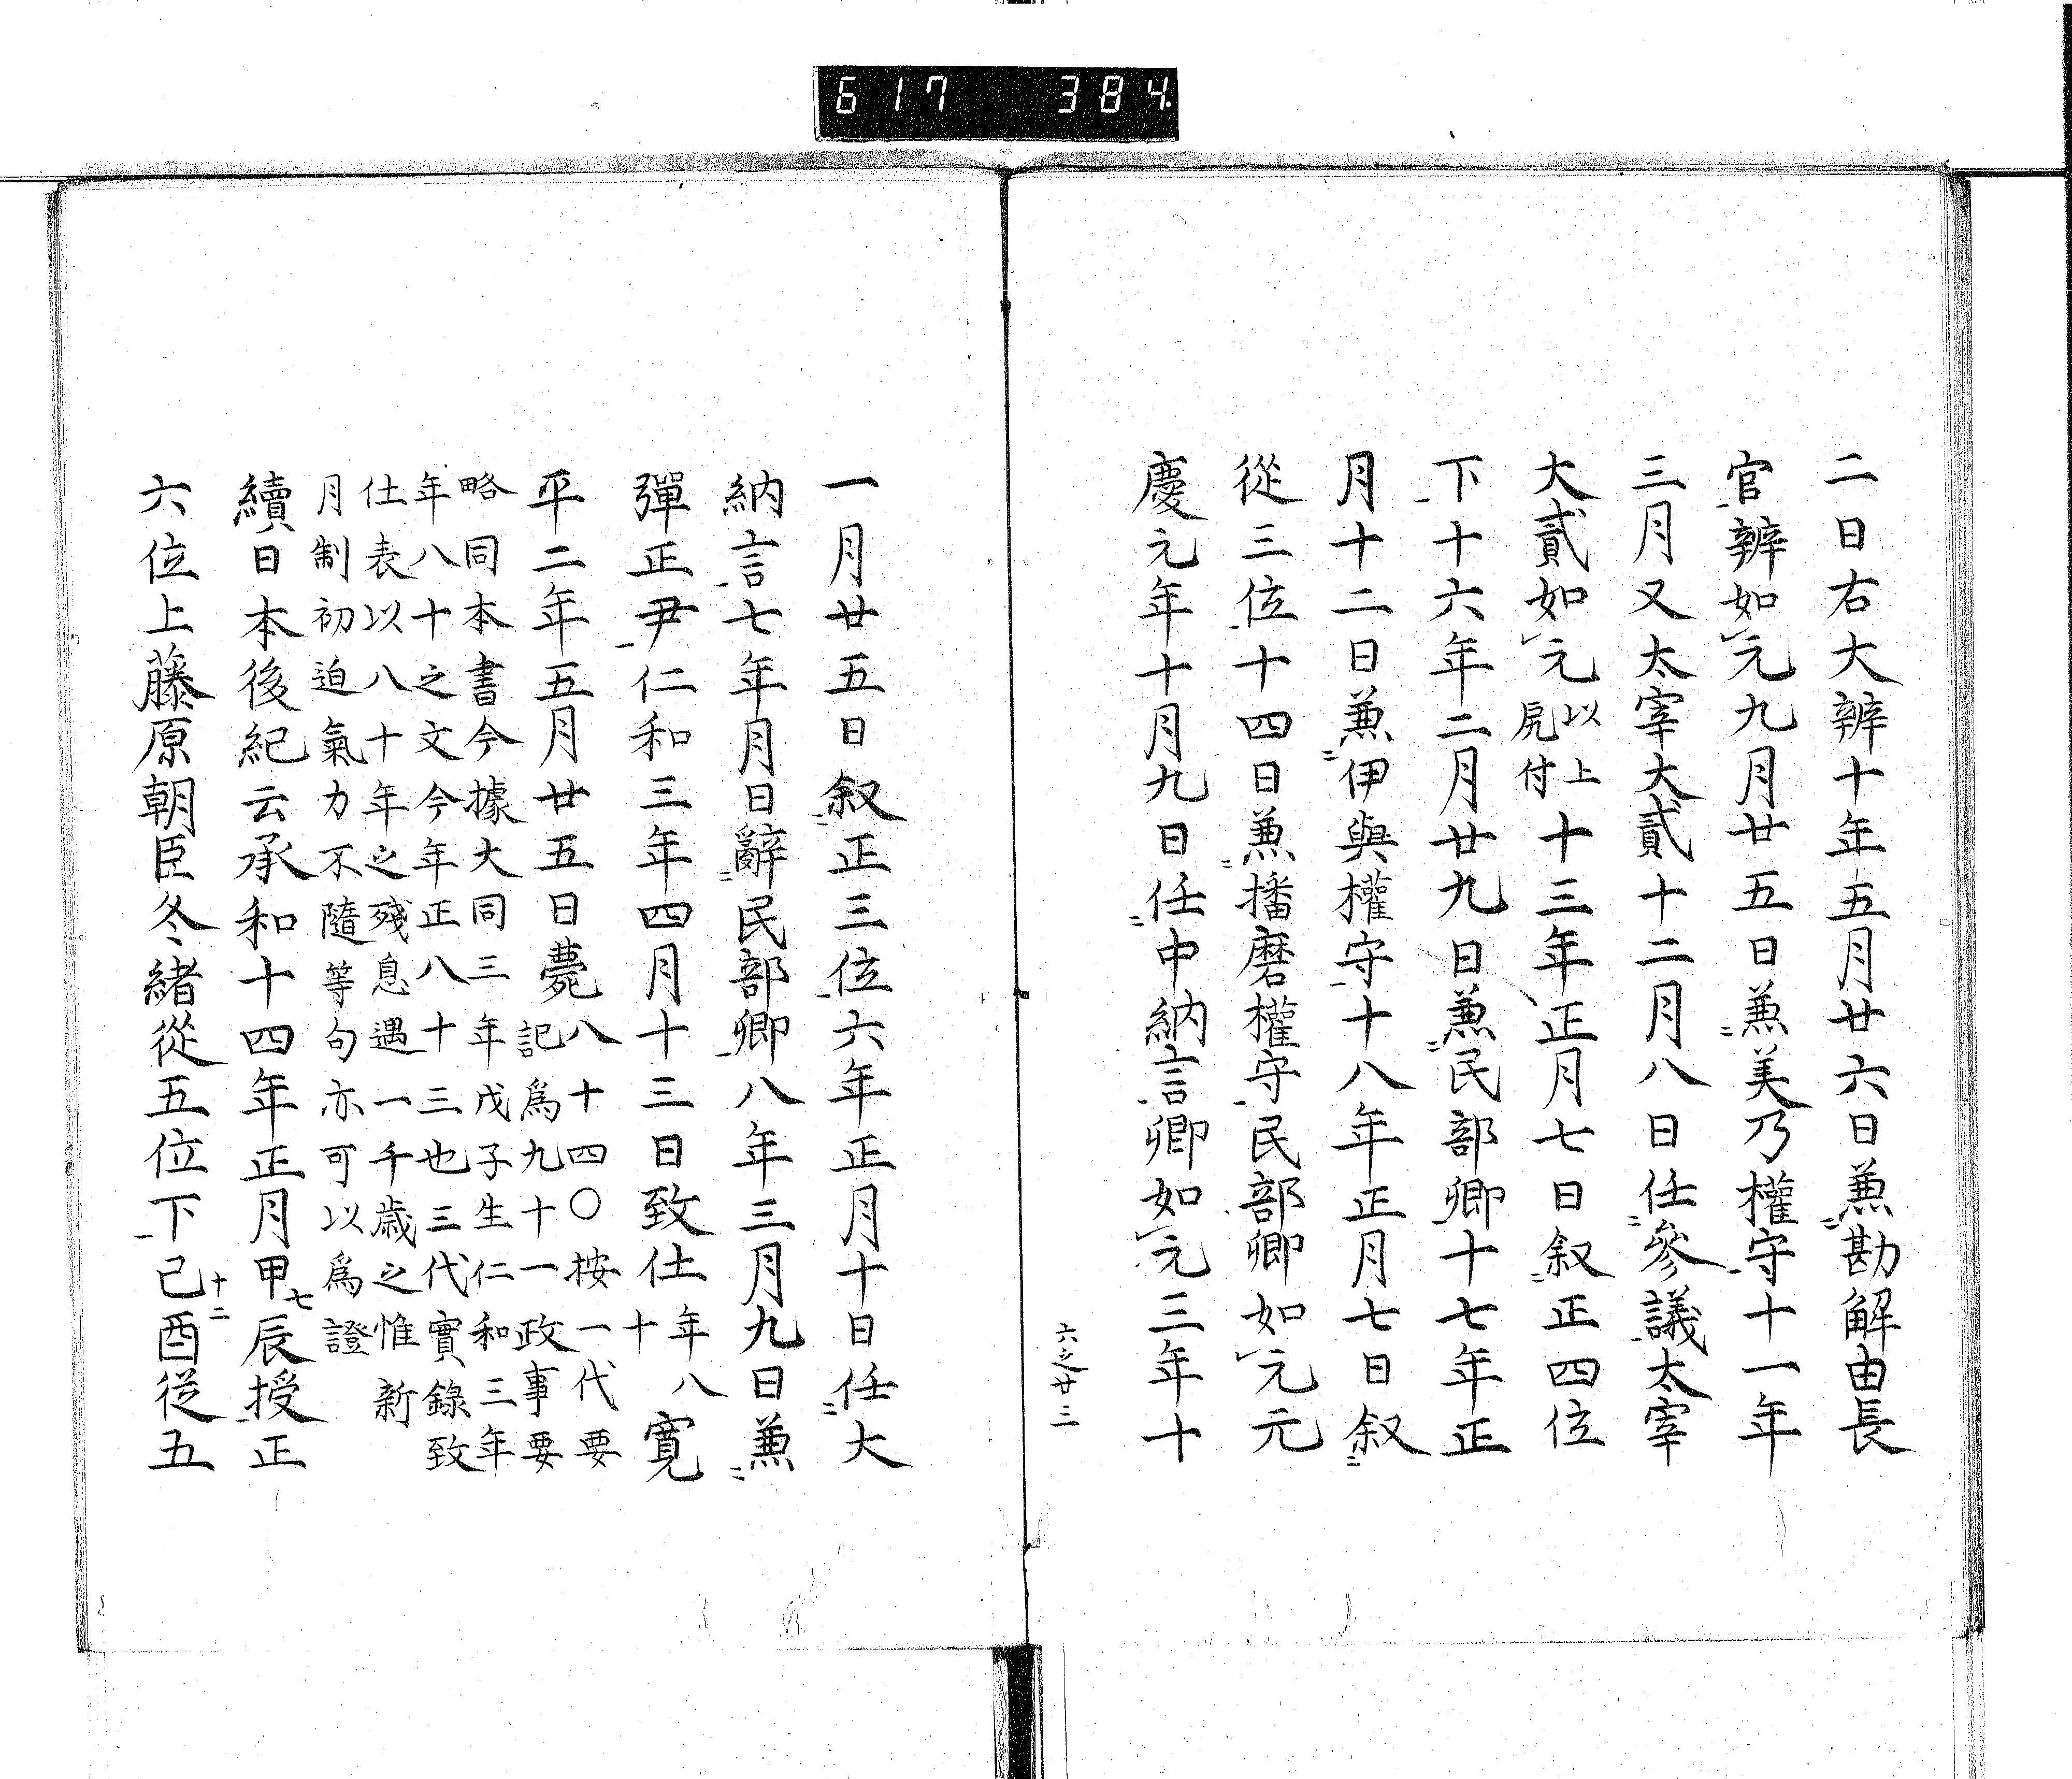 617 384
二日右大辨十年五月廿六日兼勘解由長
官辨如元九月廿五日兼美乃權守十一年
三月又太宰大貳十二月八日任參議太宰
大貳如元以上尻付十三年正月七日叙正四位
下十六年二月廿九日兼民部卿十七年正
月十二日兼伊與權守十八年正月七日叙
從三位十四日兼播磨權守民部卿如元元
慶元年十月九日任中納言卿如元三年十
六之廿三
一月廿五日叙正三位六年正月十日任大
納言七年月日辭民部卿八年三月九日兼
彈正尹仁和三年四月十三日致仕年八十寬
平二年五月廿五日薨八十四〇按一代要
記爲九十一政事要
略同本書今據大同三年戊子生仁和三年
年八十之文今年正八十三也三代實錄致
仕表以八十年之殘息遇一千歳之惟新
月制初迫氣力不隨等句亦可以爲證
續日本後紀云承和十四年正月甲辰七授正
六位上藤原朝臣冬緒從五位下己酉十二從五